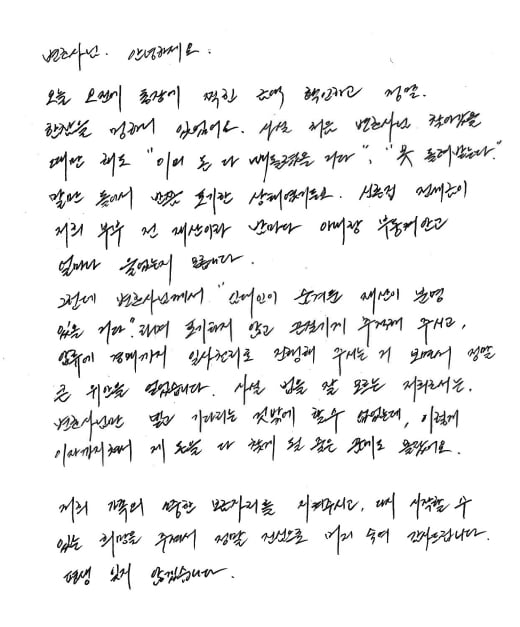 변호사님. 안녕하세요.
오늘 오전에 통장에 찍힌 금액 확인하고 정말.
한참을 멍하니 있었어요. 사실 처음 변호사님 찾아갔을
때만 해도 "이미 돈 다 빼돌렸을 거다", "못 돌려받는다."
말만 들어서 반쯤 포기한 상태였거든요. 신혼집 전세금이
저희 부부 전 재산이라 밤마다 아내랑 부둥켜안고
얼마나 울었는지 모릅니다.
그런데 변호사님께서 "임대인이 숨겨둔 재산이 분명
있을 거다."라며 포기하지 않고 끈질기게 추적해 주시고,
압류에 경매까지 일사천리로 진행해 주시는 거 보면서 정말
큰 위안을 얻었습니다. 사실 법을 잘 모르는 저희로서는.
변호사님만 믿고 기다리는 것밖에 할수 없었는데, 이렇게
이자까지 쳐서 제 돈을 다 찾게 될 줄은 꿈에도 몰랐어요.
저희 가족의 소중한 보금자리를 지켜주시고, 다시 시작할 수
있는 희망을 주셔서 정말 진심으로 머리 숙여 감사드립니다.
평생 잊지 않겠습니다.